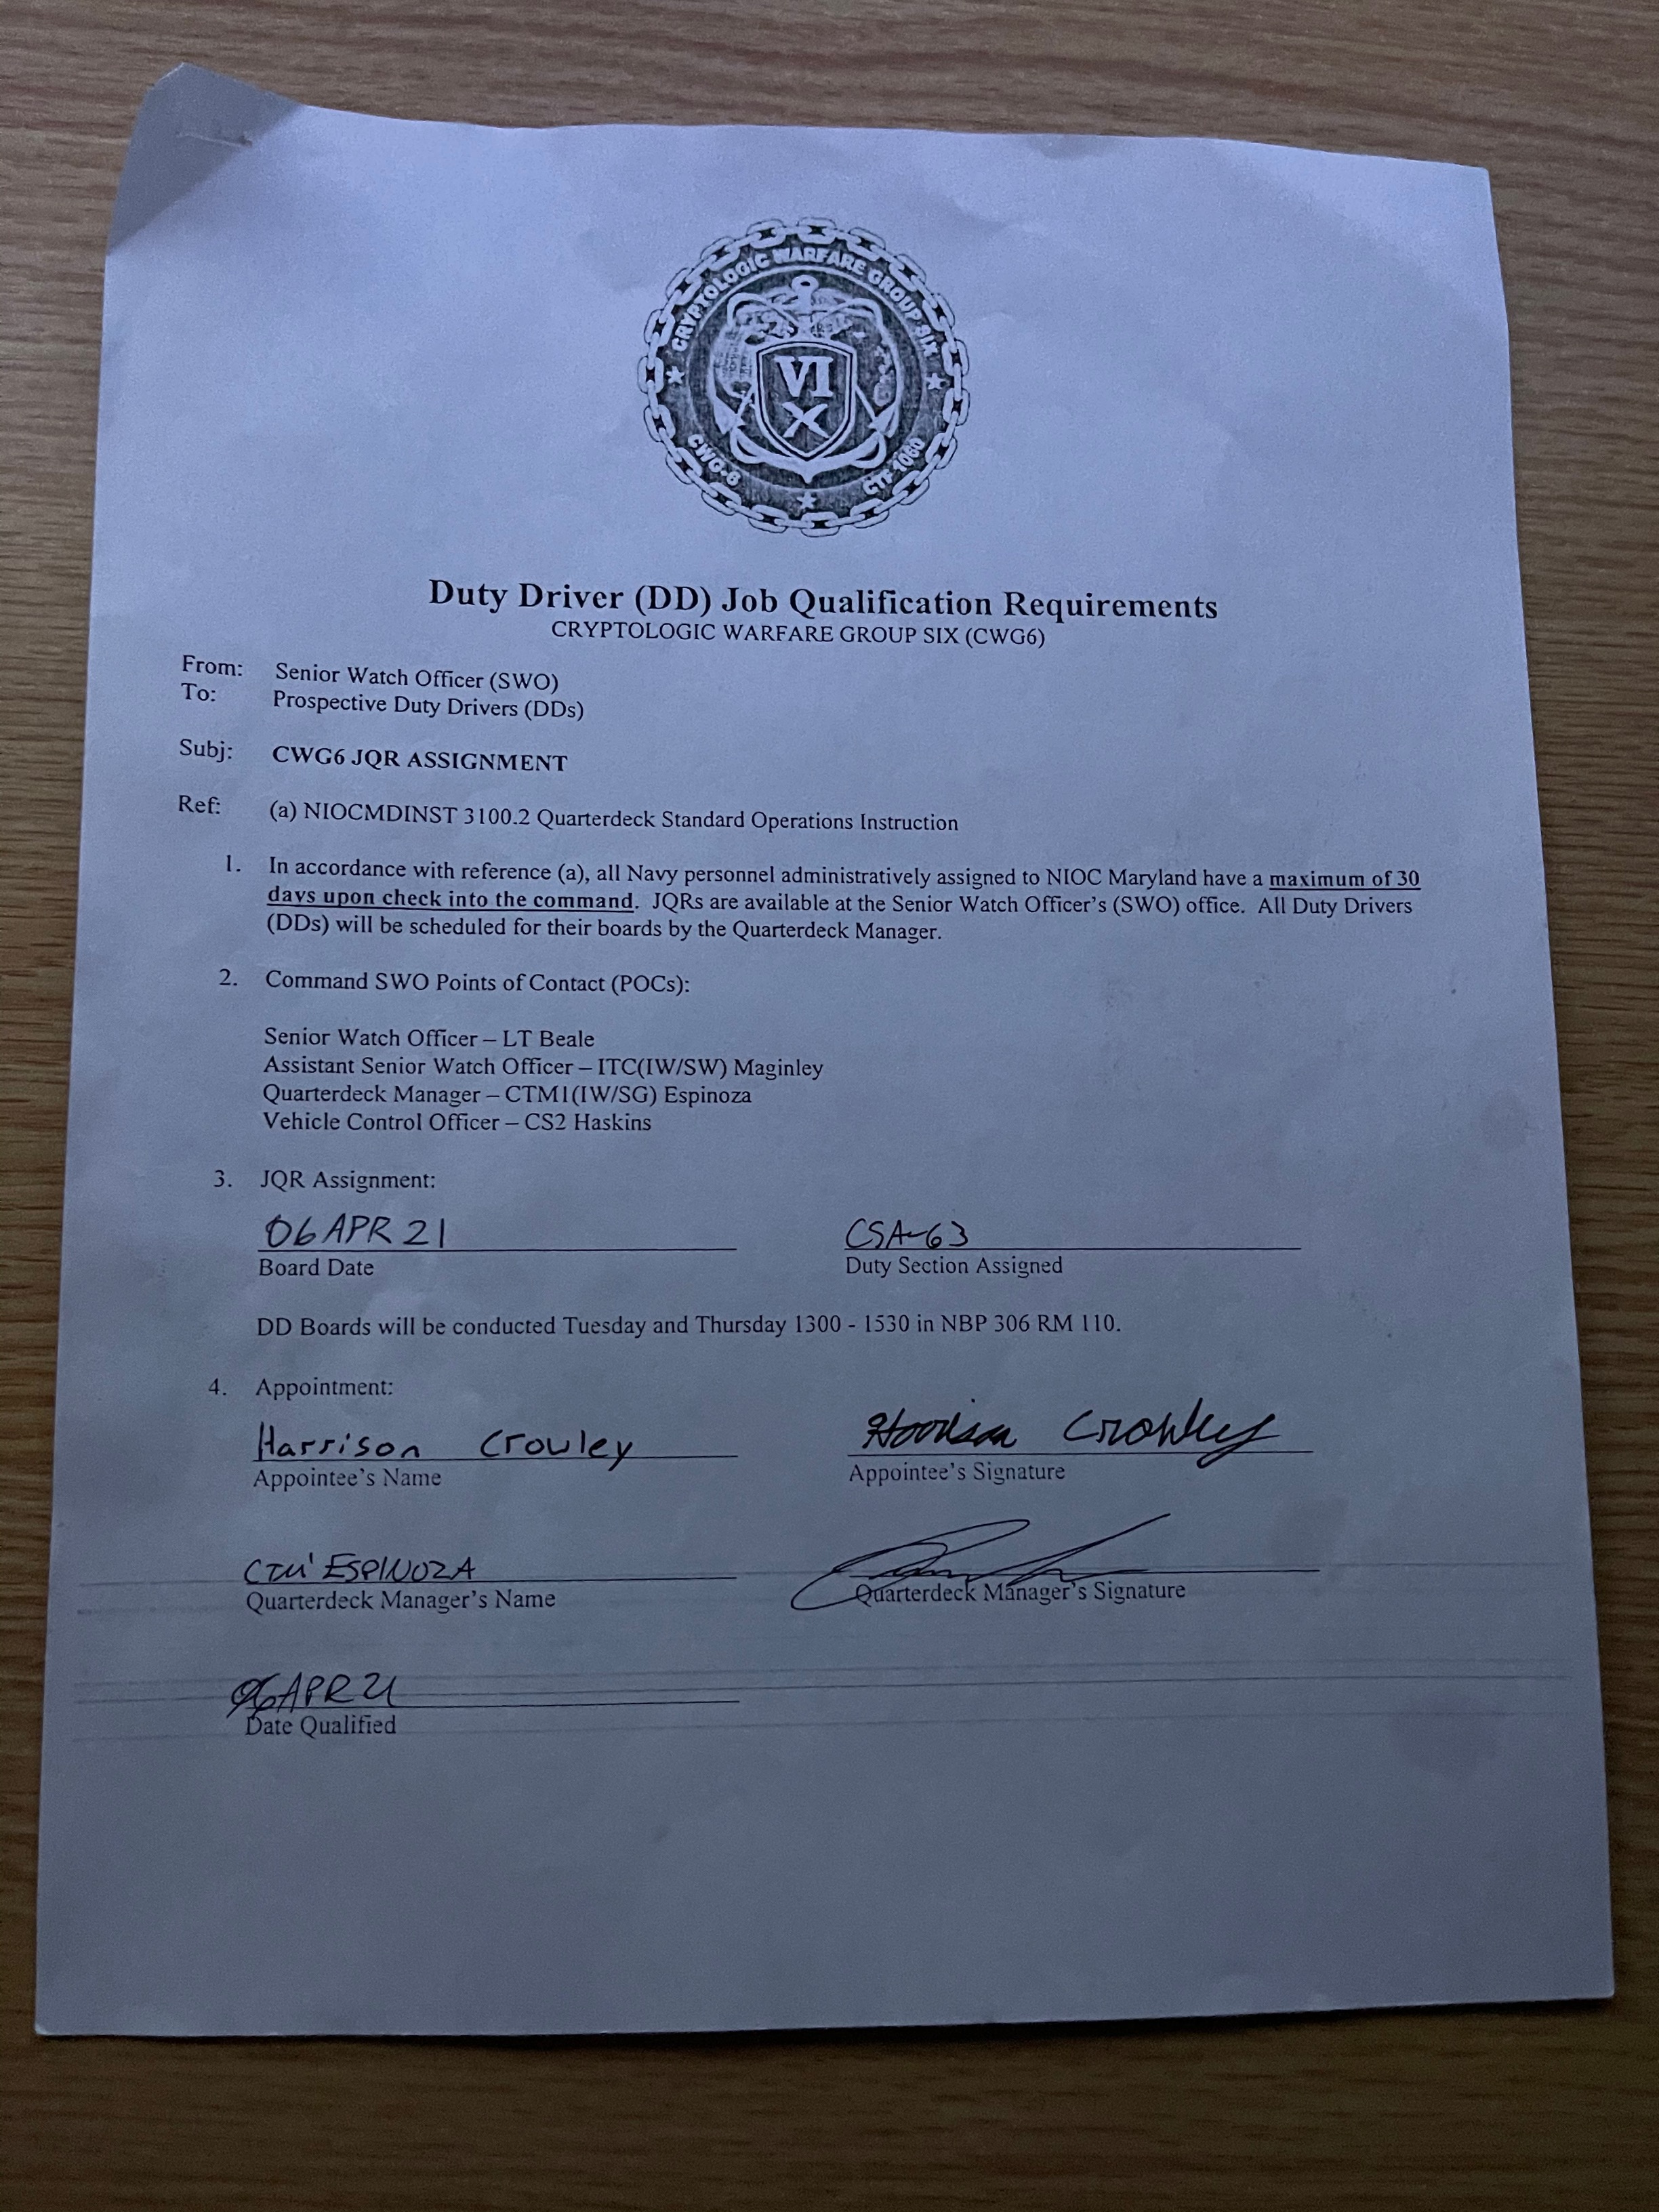 CRYPTOLOGIC WARFARE GROUP SIX
VI
X
CWG-6
CTF 1060
Duty Driver (DD) Job Qualification Requirements
CRYPTOLOGIC WARFARE GROUP SIX (CWG6)
From: Senior Watch Officer (SWO)
To: Prospective Duty Drivers (DDs)
Subj: CWG6 JQR ASSIGNMENT
Ref: (a) NIOCMDINST 3100.2 Quarterdeck Standard Operations Instruction
1. In accordance with reference (a), all Navy personnel administratively assigned to NIOC Maryland have a maximum of 30
days upon check into the command. JQRs are available at the Senior Watch Officer's (SWO) office. All Duty Drivers
(DDs) will be scheduled for their boards by the Quarterdeck Manager.
2. Command SWO Points of Contact (POCs):
Senior Watch Officer – LT Beale
Assistant Senior Watch Officer – ITC(IW/SW) Maginley
Quarterdeck Manager – CTM1(IW/SG) Espinoza
Vehicle Control Officer – CS2 Haskins
3. JQR Assignment:
06 APR 21 CSA-63
Board Date Duty Section Assigned
DD Boards will be conducted Tuesday and Thursday 1300 - 1530 in NBP 306 RM 110.
4. Appointment:
Harrison Crowley Harrison Crowley
Appointee's Name Appointee's Signature
CTM1 ESPINOZA
Quarterdeck Manager's Name Quarterdeck Manager's Signature
06APR21
Date Qualified